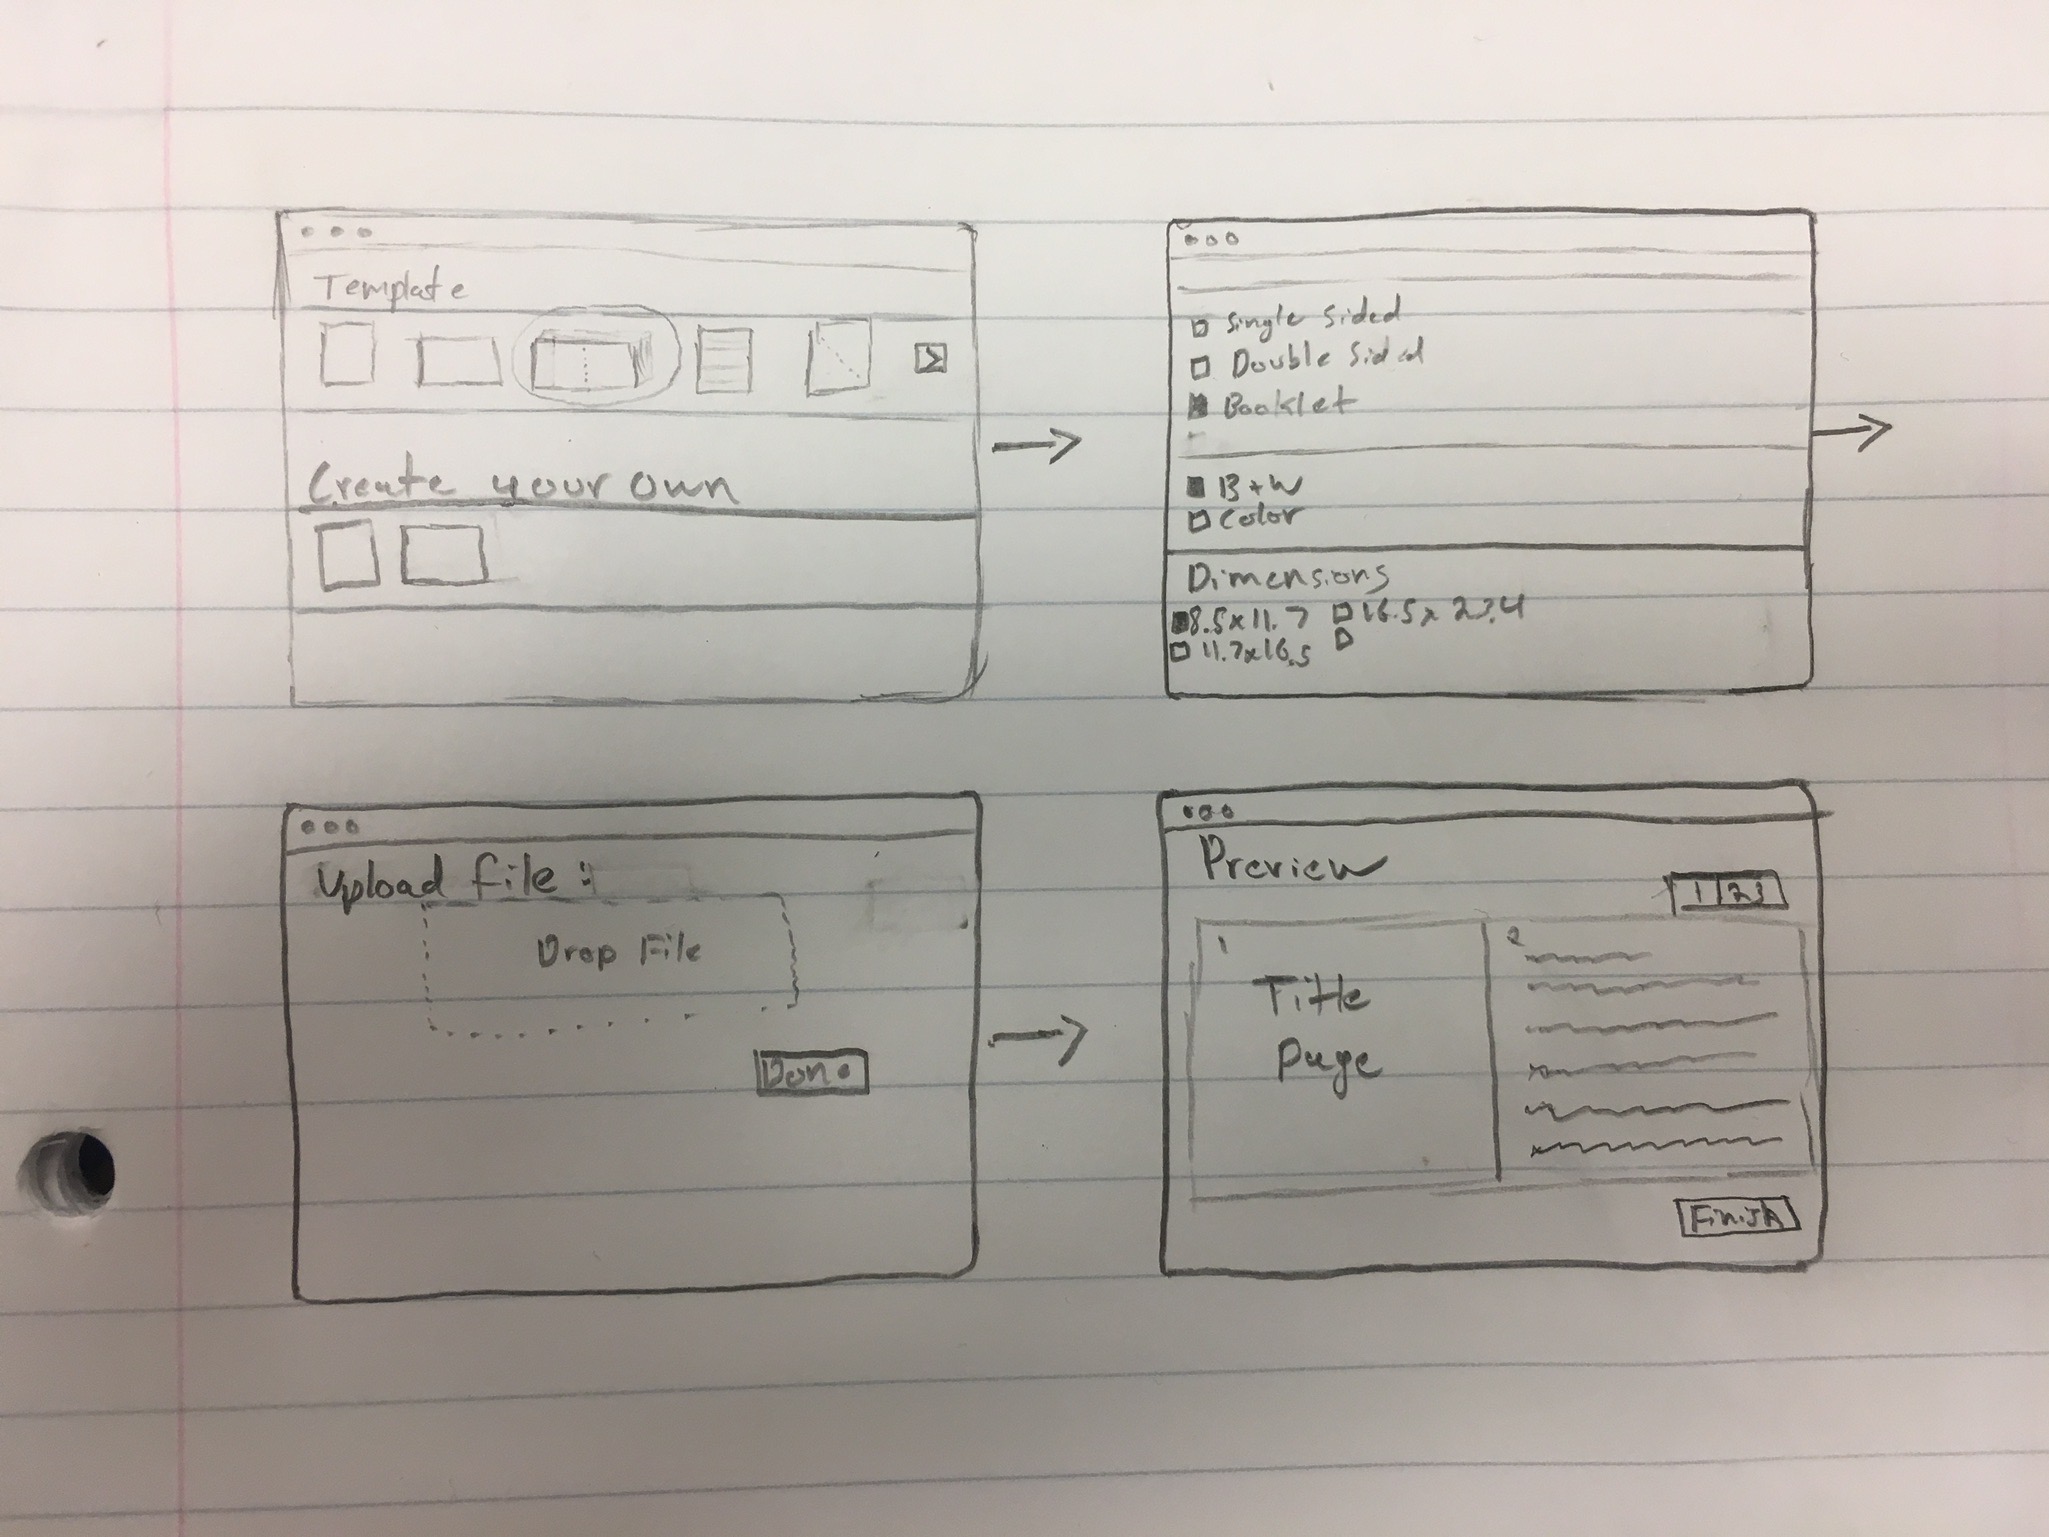 Template
Create your own
Single Sided
Double Sided
Booklet
B+W
Color
Dimensions
8.5x11.7 16.5x23.4
11.7x16.5
Upload file:
Drop File
Done
Preview
1 23
1
Title
Page
2
Finish